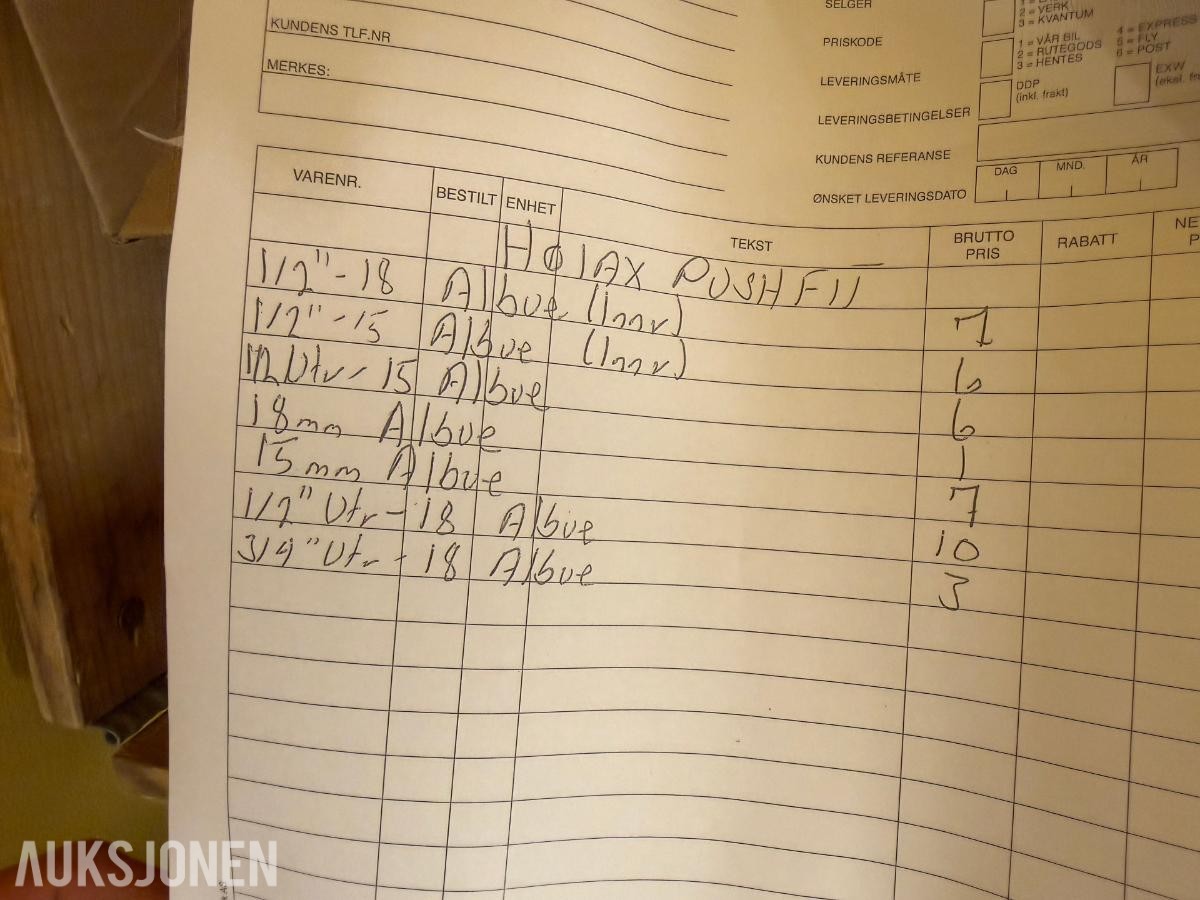 SELGER
2 = VERK
3 = KVANTUM
KUNDENS TLF.NR
PRISKODE
1 = VÅR BIL
2 = RUTEGODS
3 = HENTES
4 = EXPRESS
5 = FLY
6 = POST
MERKES:
LEVERINGSMÅTE
DDP
(inkl. frakt)
EXW
LEVERINGSBETINGELSER
KUNDENS REFERANSE
ØNSKET LEVERINGSDATO
DAG MND. ÅR
VARENR. BESTILT ENHET TEKST BRUTTO PRIS RABATT
PUSHFIT
1/2" - 18 Albue (Innv) 7
1/2" - 15 Albue (Innv) 6
1/2 Utv - 15 Albue 6
18mm Albue 1
15mm Albue 7
1/2" Utv - 18 Albue 10
3/4" Utv - 18 Albue 3
AUKSJONEN